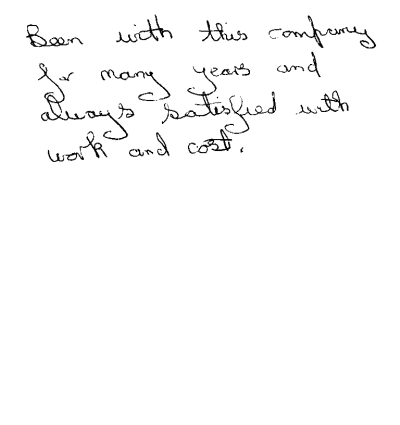 Been with this company
for many years and
always satisfied with
work and cost.